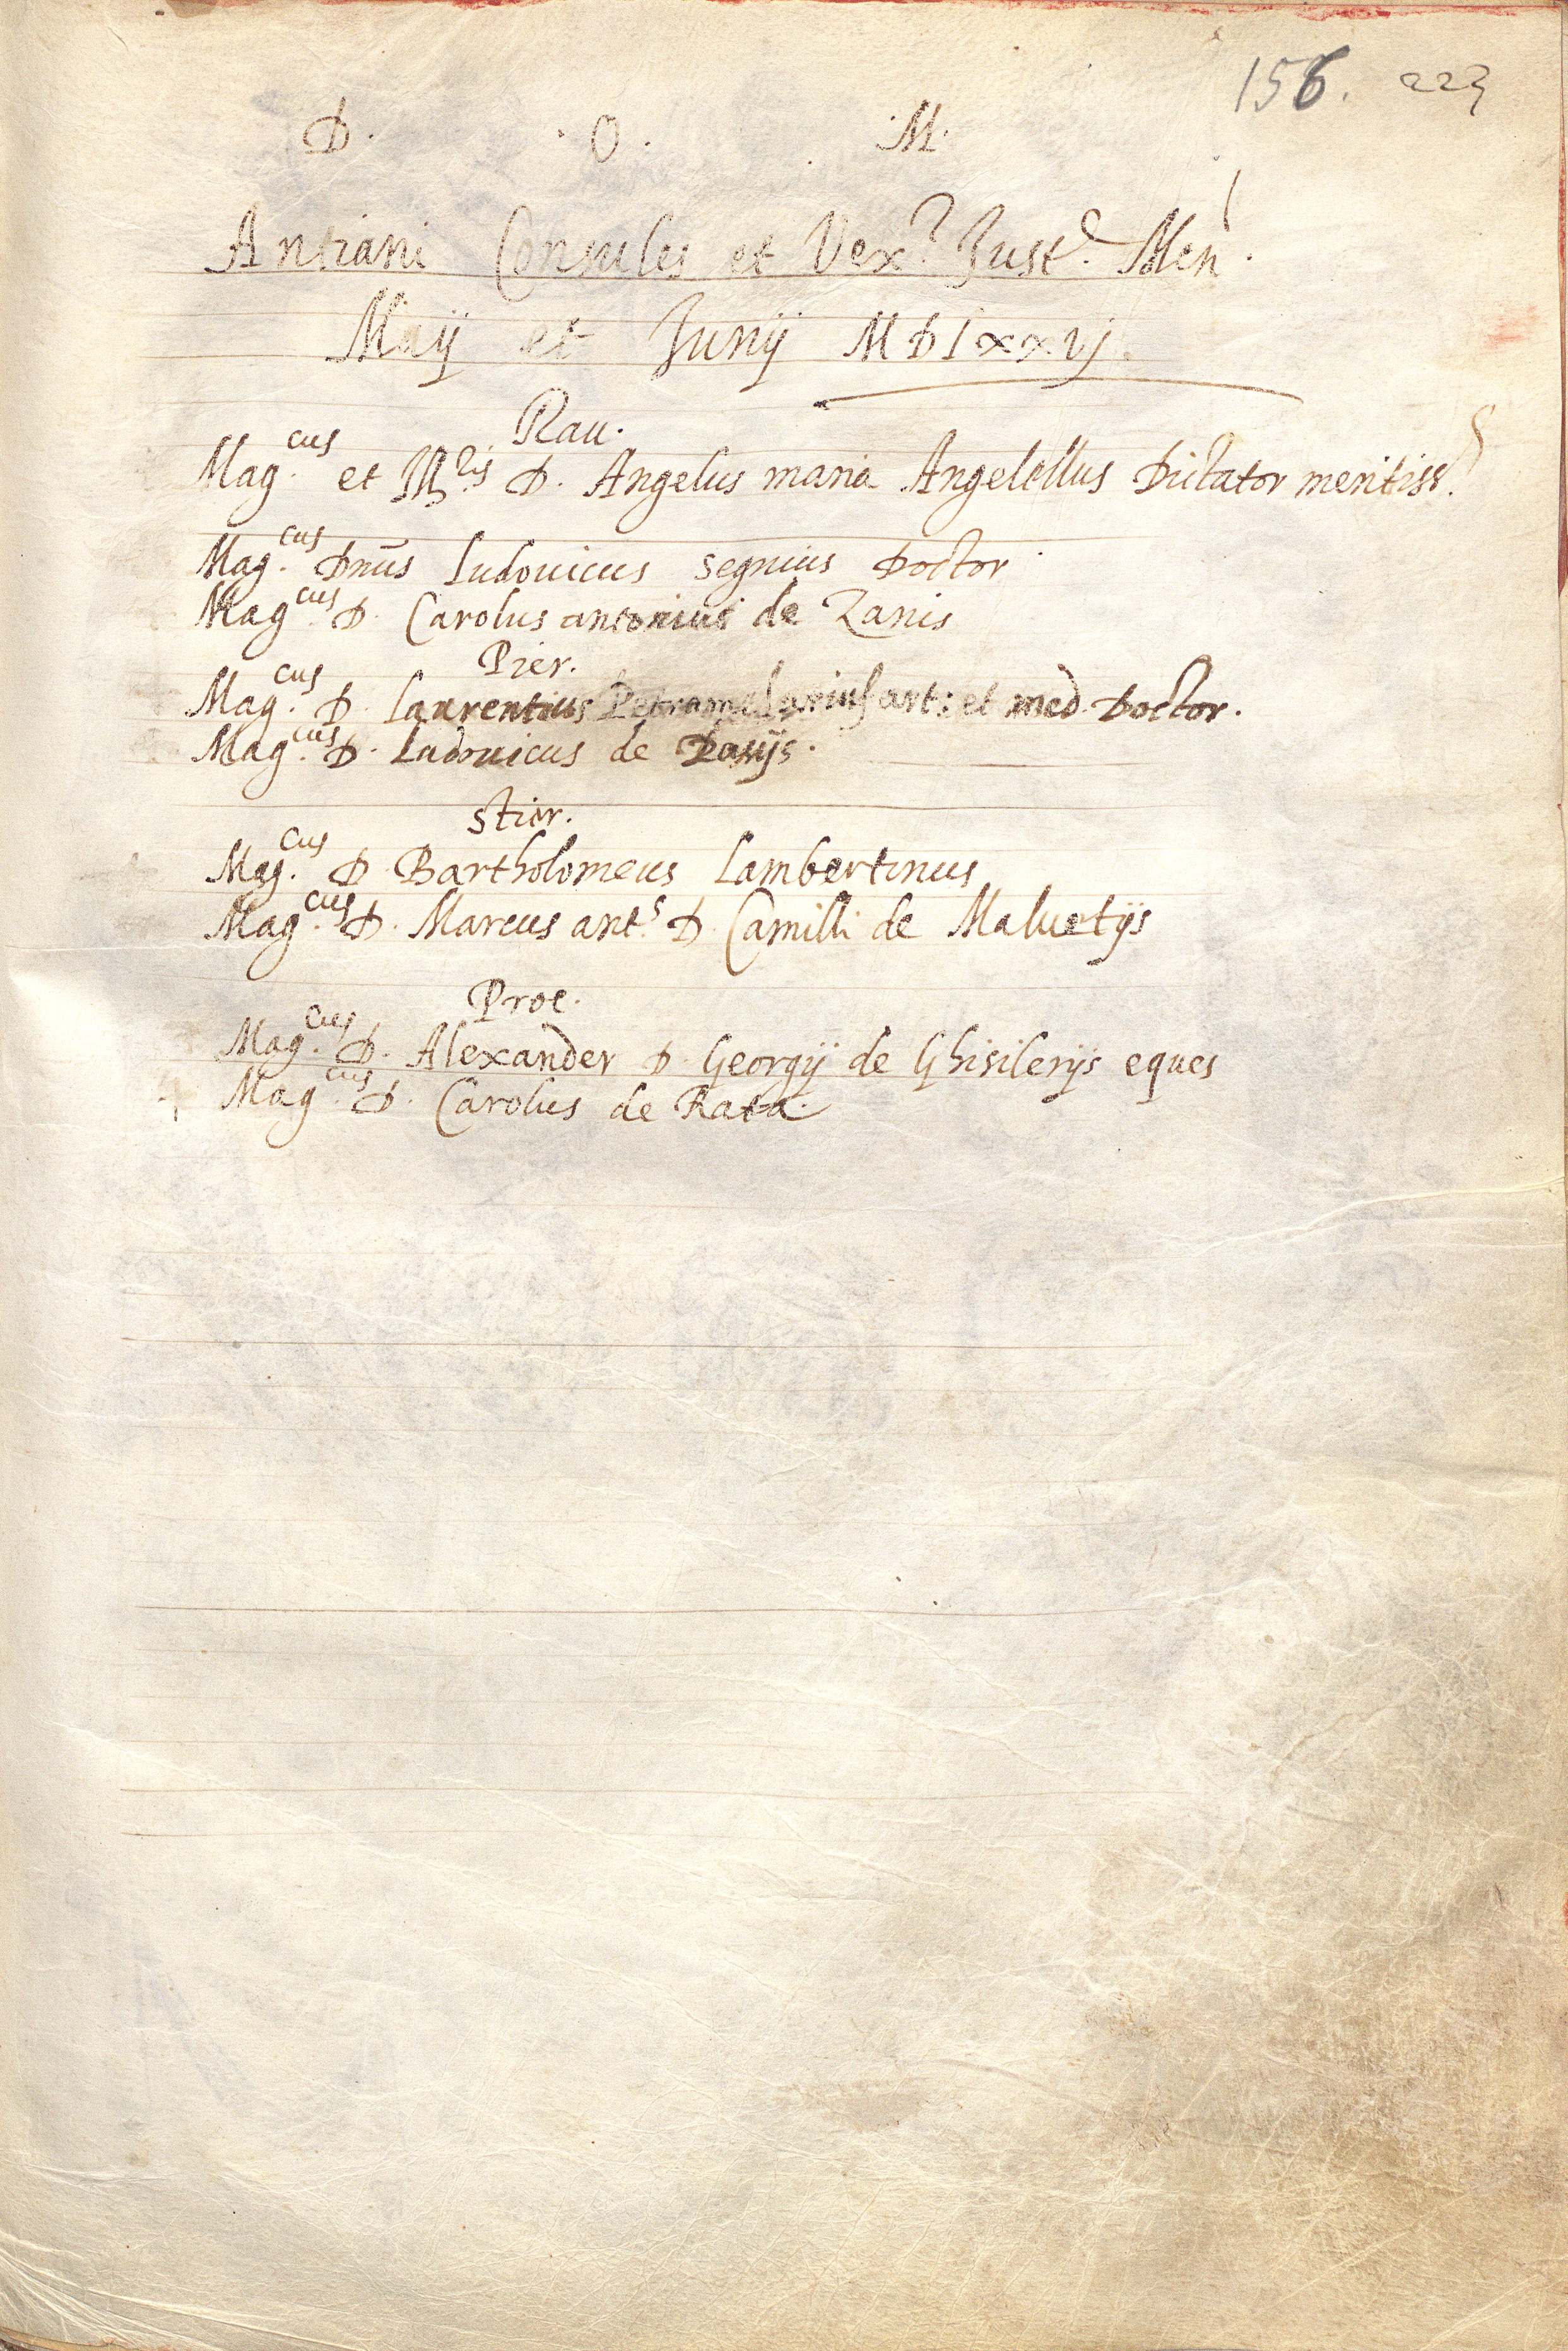 156. 223
D. . O. . M.
Antiani Consules et Vex.r Just.e Men.
Maij et Junij MDLxxvj.
Rau.
Mag.cus et Ill.ris D. Angelus maria Angelellus Dictator meritiss.
Mag.cus Dnūs Ludouicus segnius Doctor
Mag.cus D. Carolus antonius de Zanis
Pier.
Mag.cus D. Laurentius Petramelarius art: et med. Doctor.
Mag.cus D. Ludouicus de
Stier.
Mag.cus D. Bartholomeus Lambertinus
Mag.cus D. Marcus ant.s D. Camilli de Maluetijs
Proc.
Mag.cus D. Alexander D. Georgij de Ghisilerijs eques
Mag.cus D. Carolus de Rata.